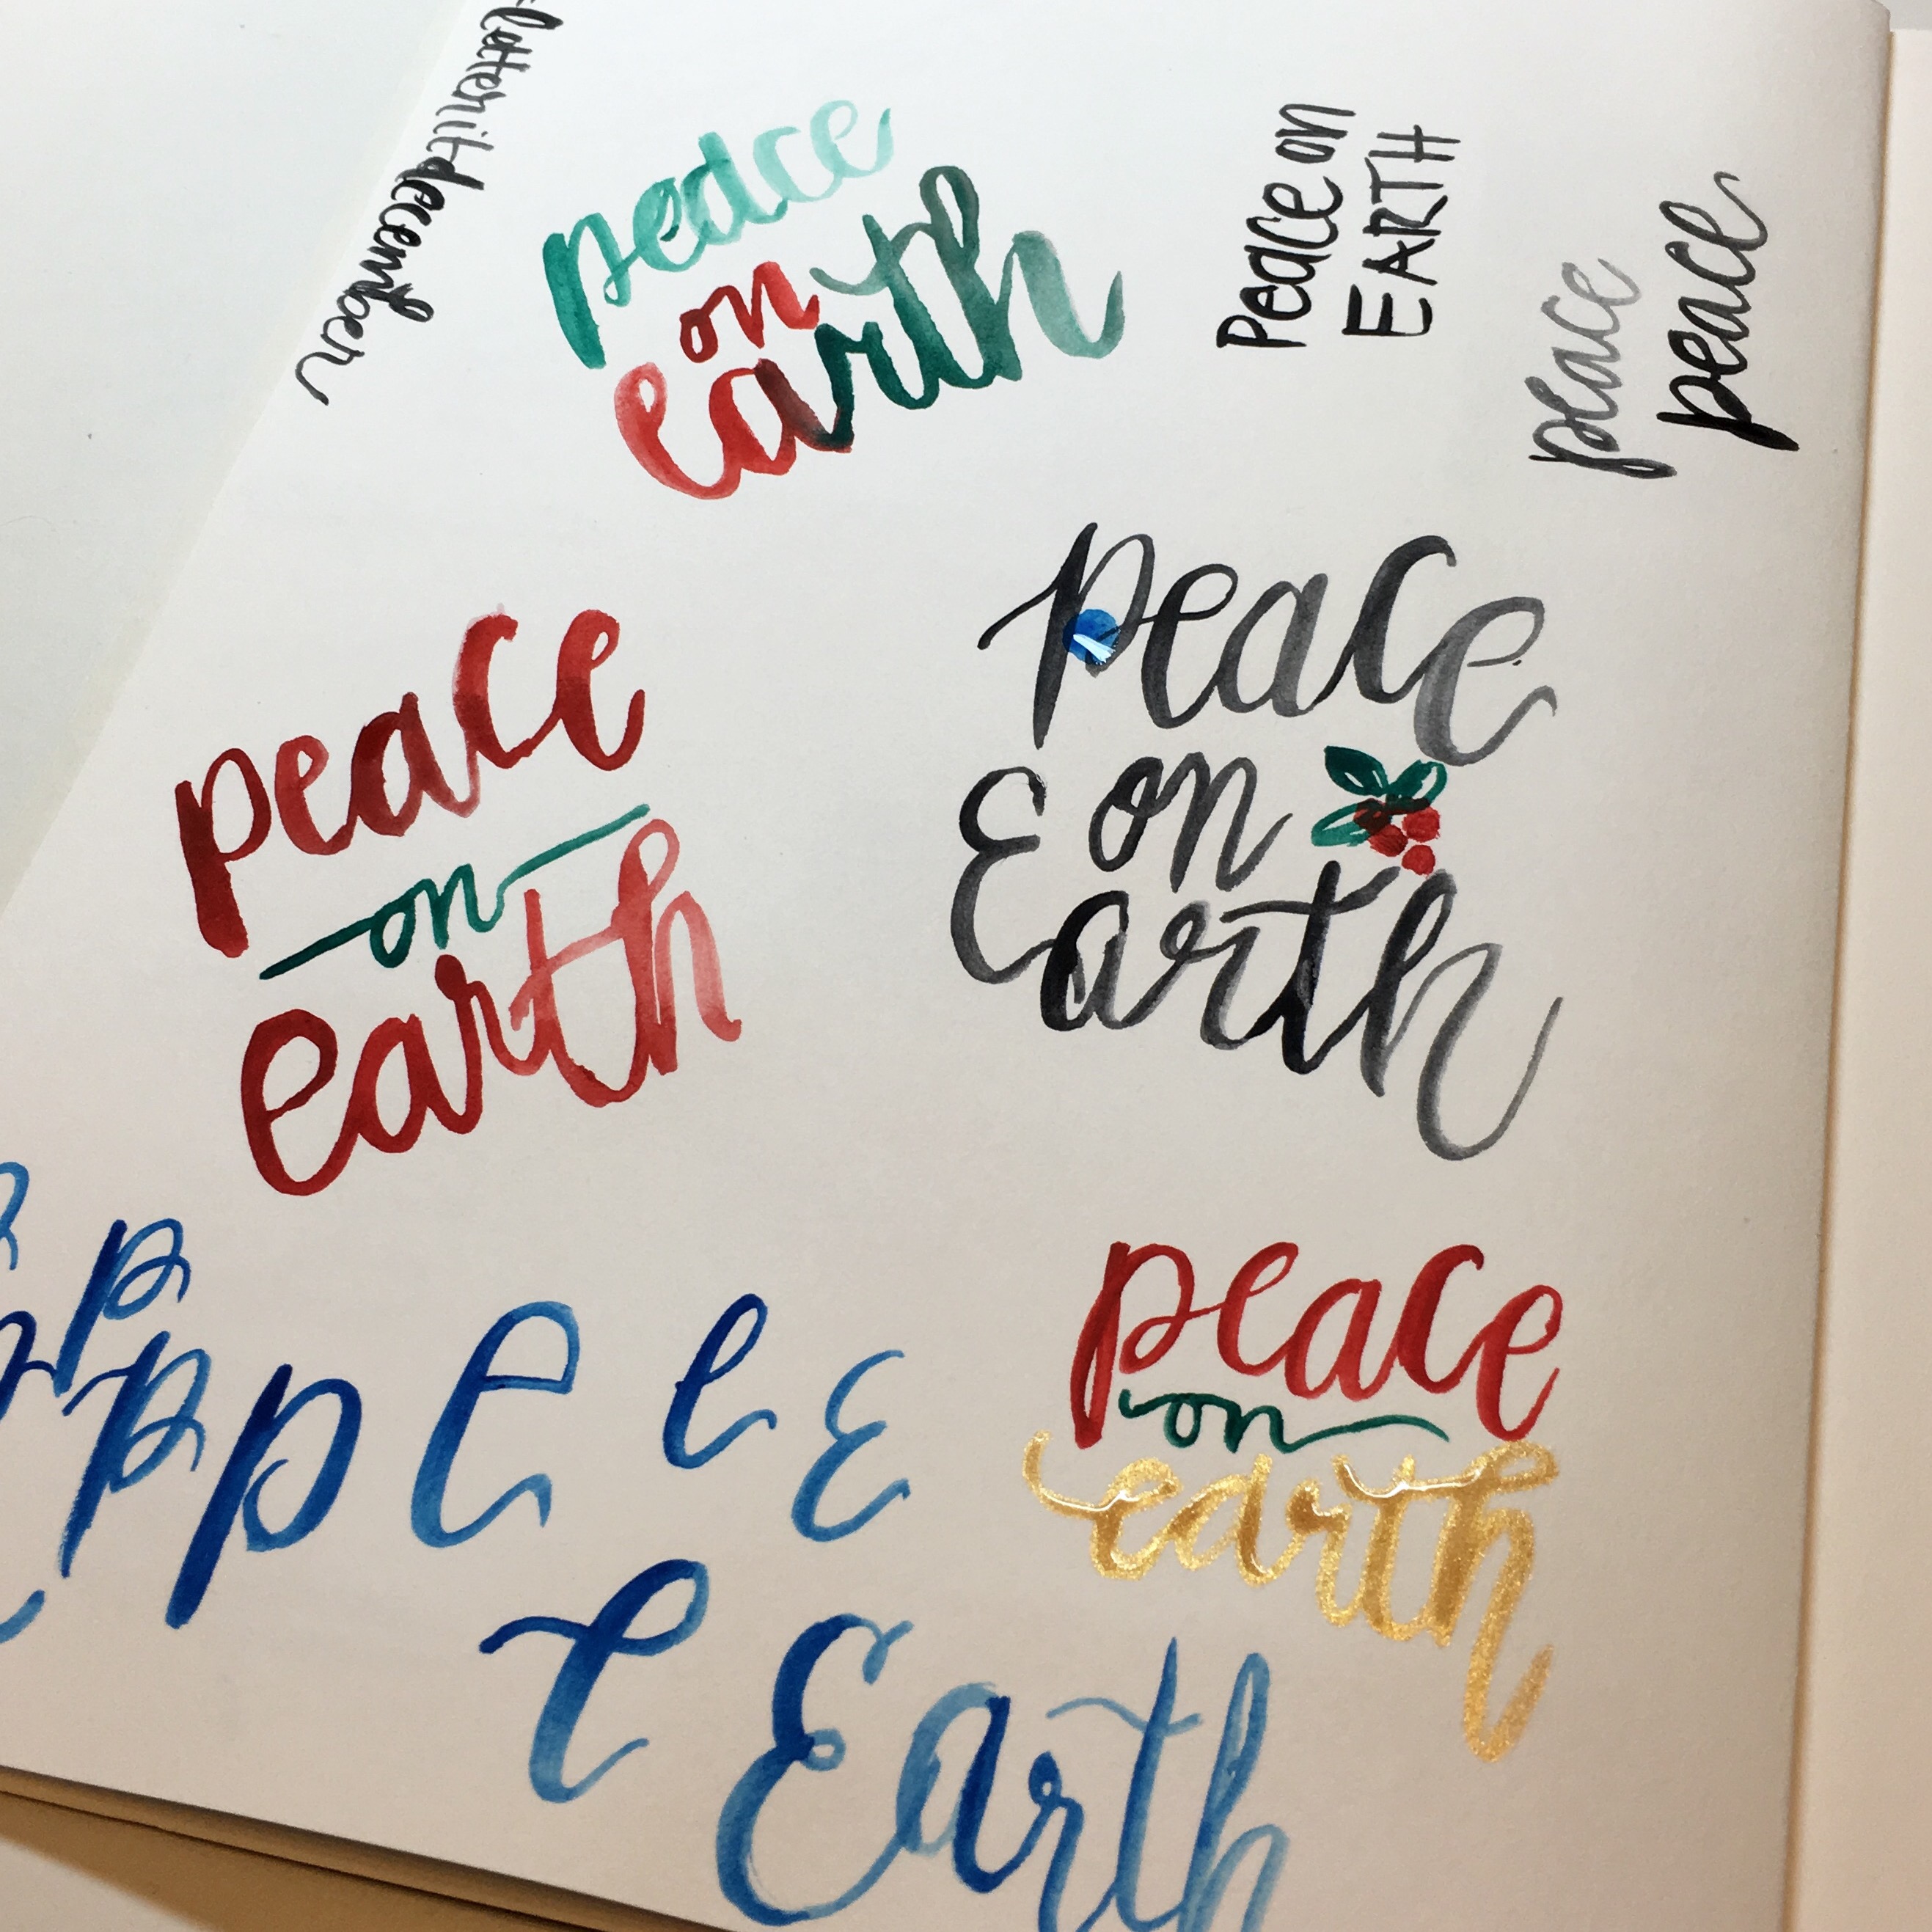 letteritdecember
peace
on
earth
Peace on
EARTH
peace
peace
peace
on
earth
peace
on
Earth
p
p
p
e
e
e
peace
on
earth
e
Earth